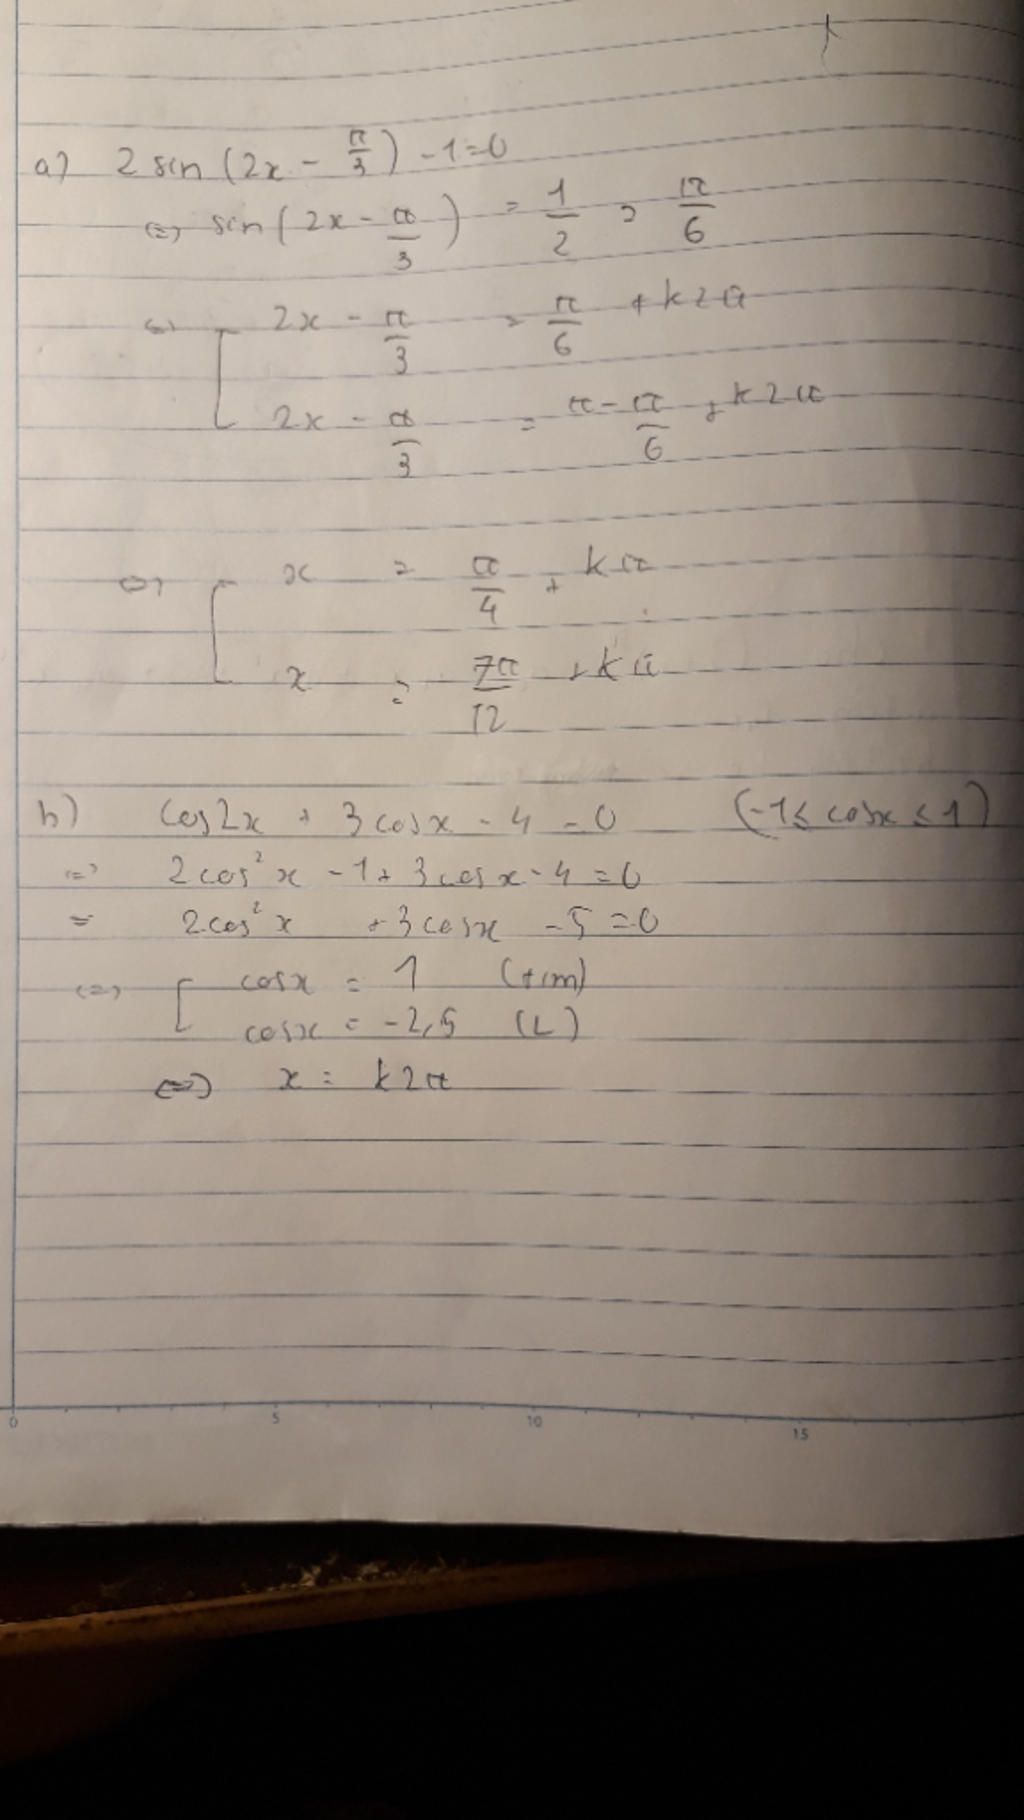 a) 2 sin (2x - π/3) - 1 = 0
<=> sin (2x - π/3) = 1/2 = π/6
<=> [ 2x - π/3 = π/6 + k2π
2x - π/3 = π - π/6 + k2π
<=> [ x = π/4 + kπ
x = 7π/12 + kπ
b) cos2x + 3cosx - 4 = 0 (-1 ≤ cosx ≤ 1)
<=> 2cos²x - 1 + 3cosx - 4 = 0
= 2cos²x + 3cosx - 5 = 0
<=> [ cosx = 1 (t/m)
cosx = -2,5 (L)
<=> x = k2π
0 5 10 15